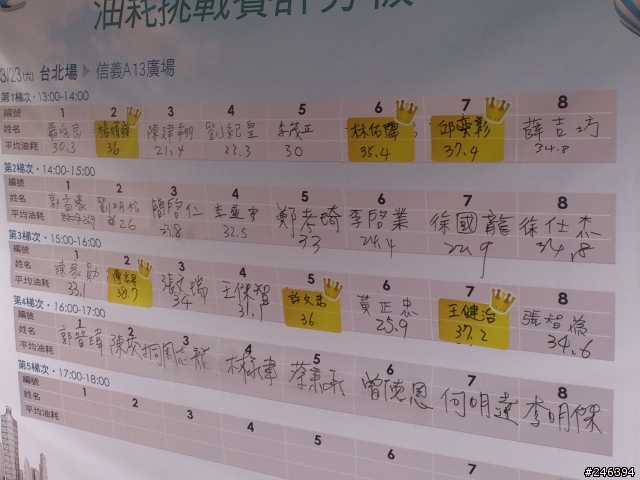 油耗挑戰賽計分板
3/23(六) 台北場 ▶ 信義A13廣場
第1梯次・13:00-14:00
編號 1 2 3 4 5 6 7 8
姓名 李茂正 林佑儒 邱奕彰 薛吉巧
平均油耗 30.3 36 21.4 23.3 30 35.4 37.4 34.8
第2梯次・14:00-15:00
編號 1 2 3 4 5 6 7 8
姓名 簡啓仁 李盛宇 鄭孝琦 李啓業 徐國龍 徐仕杰
平均油耗 26 32.5 33 24.4 22.9 34.8
第3梯次・15:00-16:00
編號 1 2 3 4 5 6 7 8
姓名 王傑智 黃正忠 王健治 張智為
平均油耗 33.1 38.7 34 31.1 36 25.9 37.2 34.6
第4梯次・16:00-17:00
編號 1 2 3 4 5 6 7 8
姓名 曾德恩 何明達 李明傑
平均油耗
第5梯次・17:00-18:00
編號 1 2 3 4 5 6 7
姓名
平均油耗
#246394